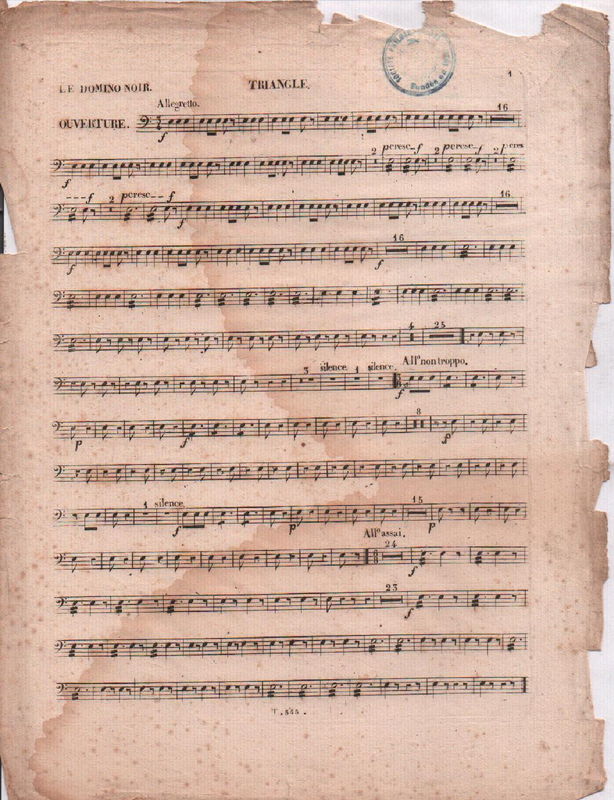 LE DOMINO NOIR.
TRIANGLE.
1
OUVERTURE.
Allegretto.
f
16
f
2 pcresc f 2 pcresc f 2 pcres
f 2 pcresc f
f
16
f
16
f
4 25
3 silence. 1 silence.
All° non troppo.
f
p
f
8
f
1 silence.
f
p
15
p
All° assai.
24
f
23
f
T. 355.